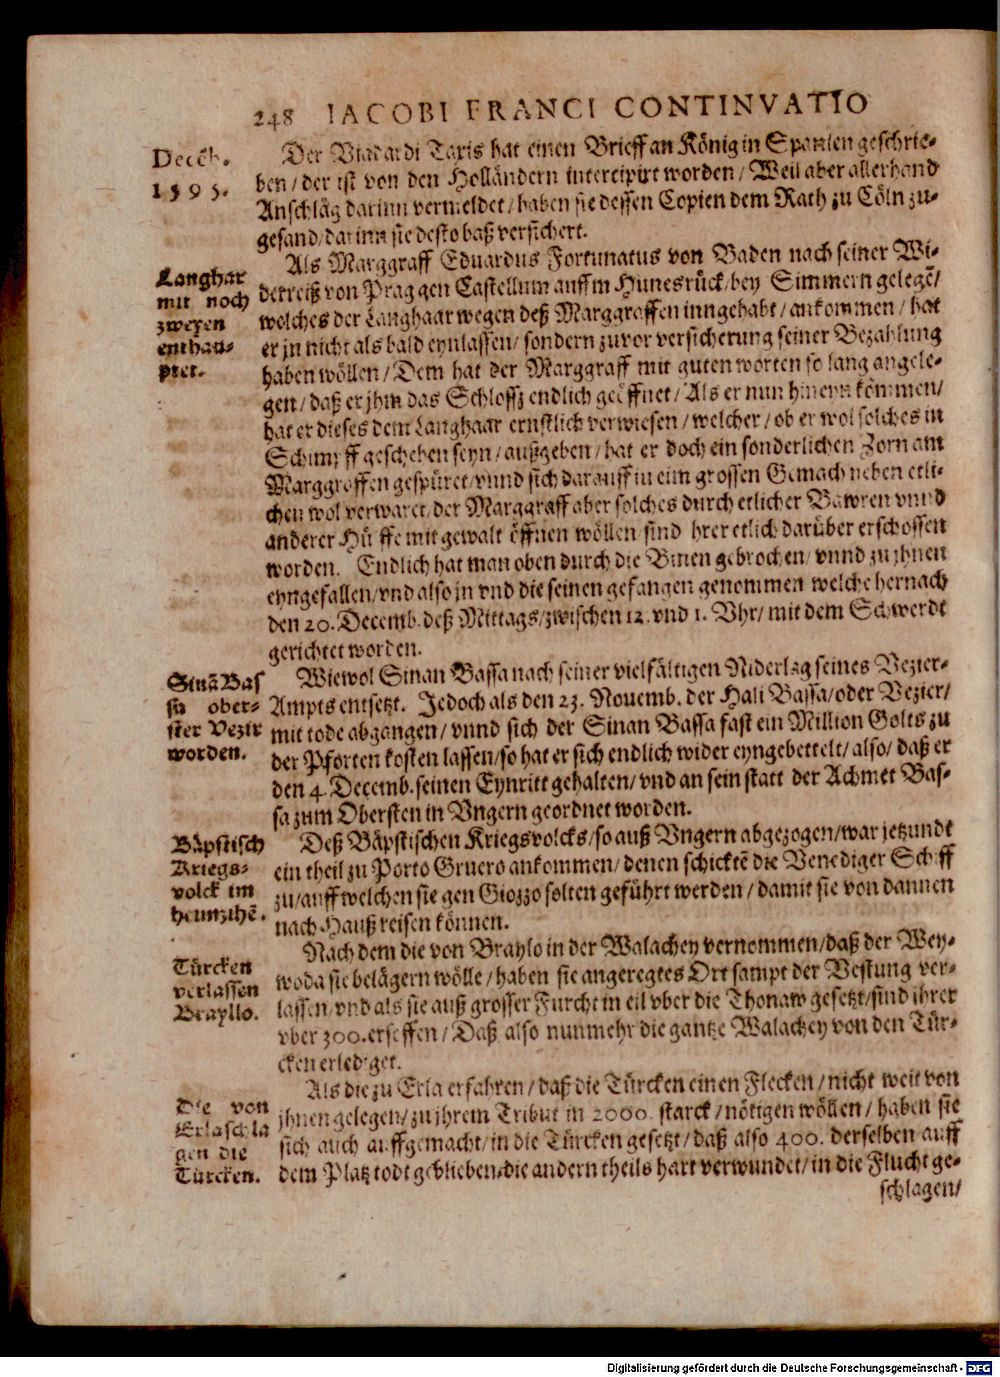 248 IACOBI FRANCI CONTINVATIO
Decẽb.
1595.
Der Viadardi Taxis hat einen Brieff an König in Spanien geschrie-
ben / der ist von den Holländern intercipirt worden / Weil aber allerhand
Anschläg darinn vermeldet / haben sie dessen Copien dem Rath zu Cöln zu-
gesand / darinn sie desto baß versichert.
Langhar
mit noch
zweyen
enthau-
ptet.
Als Marggraff Eduardus Fortunatus von Baden nach seiner Wi-
derreiß von Prag gen Castellum auffm Hunesrück / bey Simmern gelegẽ /
welches der Langhaar wegen deß Marggraffen inngehabt / ankommen / hat
er jn nicht als bald eynlassen / sondern zuvor versicherung seiner Bezahlung
haben wöllen / Dem hat der Marggraff mit guten worten so lang angele-
gen / daß er jhm das Schlossz endlich geöffnet / Als er nun hineyn kommen /
hat er dieses dem Langhaar ernstlich verwiesen / welcher / ob er wol solches in
Schimpff geschehen seyn / außgeben / hat er doch ein sonderlichen Zorn am
Marggraffen gespüret / vnnd sich darauff in eim grossen Gemach neben etli-
chen wol verwaret, der Marggraff aber solches durch etlicher Bawren vnnd
anderer Hülffe mit gewalt öffnen wöllen sind jhrer etlich darüber erschossen
worden. Endlich hat man oben durch die Bünen gebrochen / vnnd zu jhnen
eyngefallen / vnd also jn vnd die seinen gefangen genommen welche hernach
den 20. Decemb. deß Mittags / zwischen 12. vnd 1. Vhr / mit dem Schwerdt
gerichtet worden.
Sinã Bas
sa ober-
ster Vezir
worden.
Wiewol Sinan Bassa nach seiner vielfältigen Niderlag seines Vezier-
Ampts entsetzt. Jedoch als den 23. Nouemb. der Hali Bassa / oder Vezier /
mit tode abgangen / vnnd sich der Sinan Bassa fast ein Million Golts zu
der Pforten kosten lassen / so hat er sich endlich wider eyngebettelt / also / daß er
den 4. Decemb. seinen Eynritt gehalten / vnd an sein statt der Achmet Bas-
sa zum Obersten in Vngern geordnet worden.
Bäpstisch
Kriegs-
volck im
heimzihẽ.
Deß Bäpstischen Kriegsvolcks / so auß Vngern abgezogen / war jetzundt
ein theil zu Porto Gruero ankommen / denen schicktẽ die Venediger Schiff
zu / auff welchen sie gen Giozzo solten geführt werden / damit sie von dannen
nach Hauß reisen können.
Türcken
verlassen
Brayllo.
Nach dem die von Braylo in der Walachey vernommen / daß der Wey-
woda sie belägern wölle / haben sie angeregtes Ort sampt der Vestung ver-
lassen / vnd als sie auß grosser Furcht in eil vber die Thonaw gesetzt / sind ihrer
vber 300. ersoffen / Daß also nunmehr die gantze Walachey von den Tür-
cken erlediget.
Die von
Erla schla
gen die
Türcken.
Als die zu Erla erfahren / daß die Türcken einen Flecken / nicht weit von
jhnen gelegen / zu jhrem Tribut in 2000. starck / nötigen wöllen / haben sie
sich auch auffgemacht / in die Türcken gesetzt / daß also 400. derselben auff
dem Platz todt geblieben / die andern theils hart verwundet / in die Flucht ge-
schlagen /
Digitalisierung gefördert durch die Deutsche Forschungsgemeinschaft - DFG